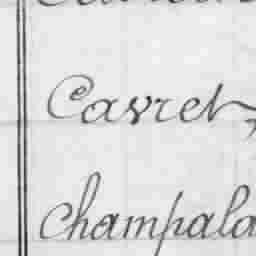 Cavret,
Champala